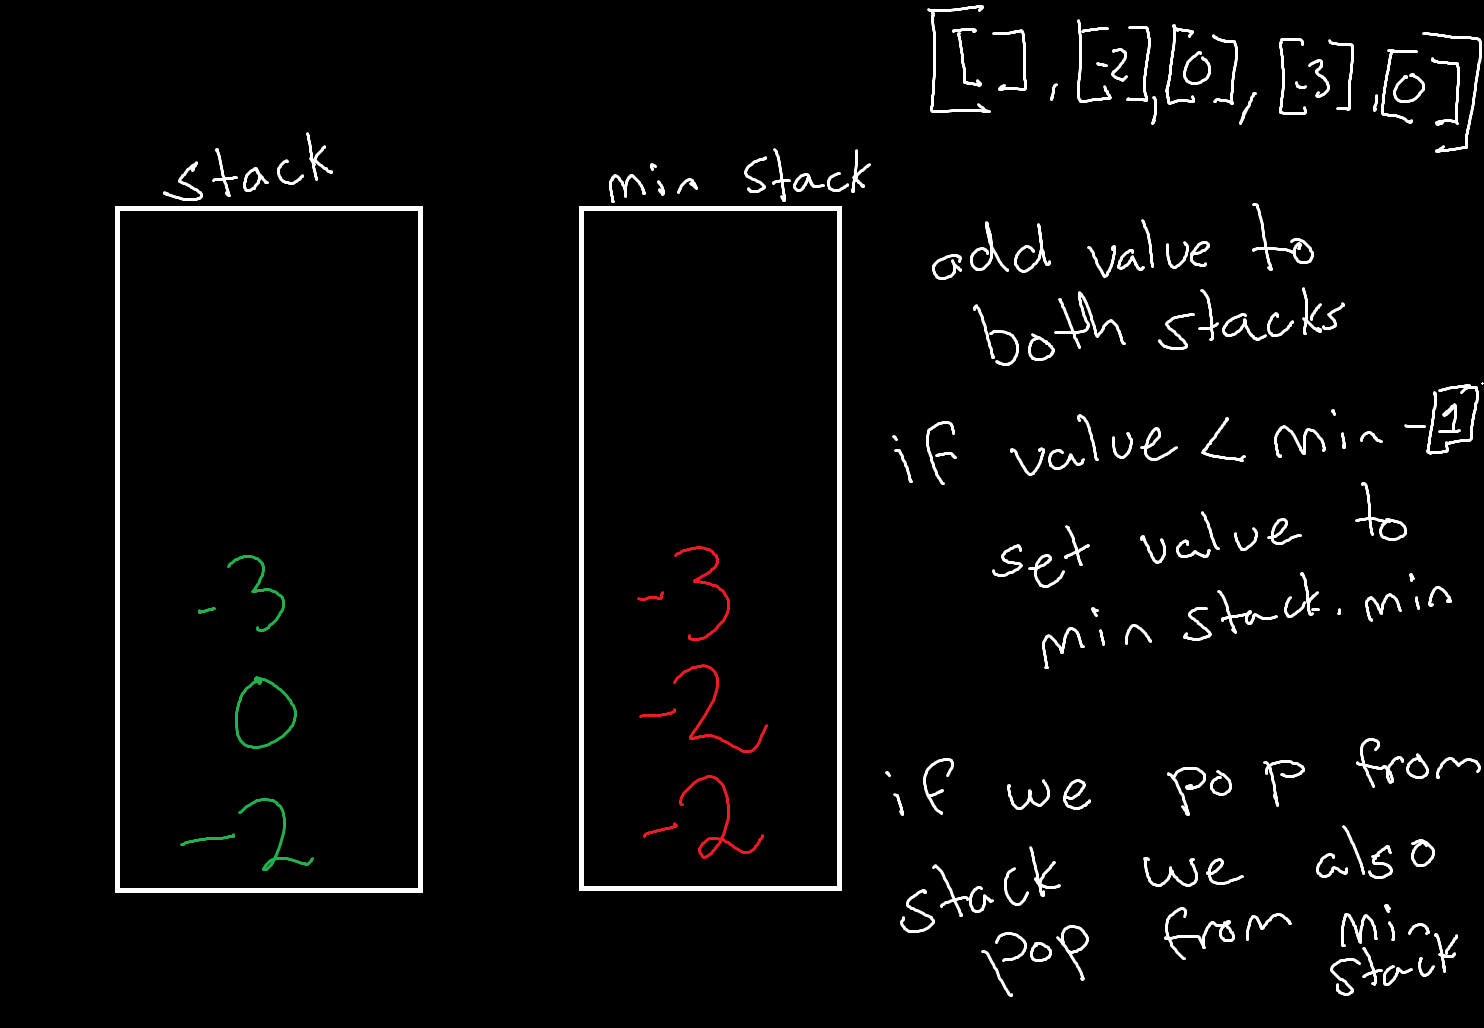 [[ ], [-2], [0], [-3], [0]]
stack
min stack
add value to
both stacks
if value < min -[1]
set value to
min stack.min
-3
0
-2
-3
-2
-2
if we pop from
stack we also
pop from min
stack